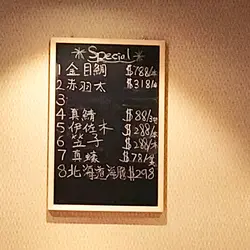 *Special*
1 金目鯛 $788/本
2 赤羽太 $318/本
3
4 真鯖 $88/
5 伊佐木 $288/本
6 笠子 $288/本
7 真 $78/
8 北海道海 $298